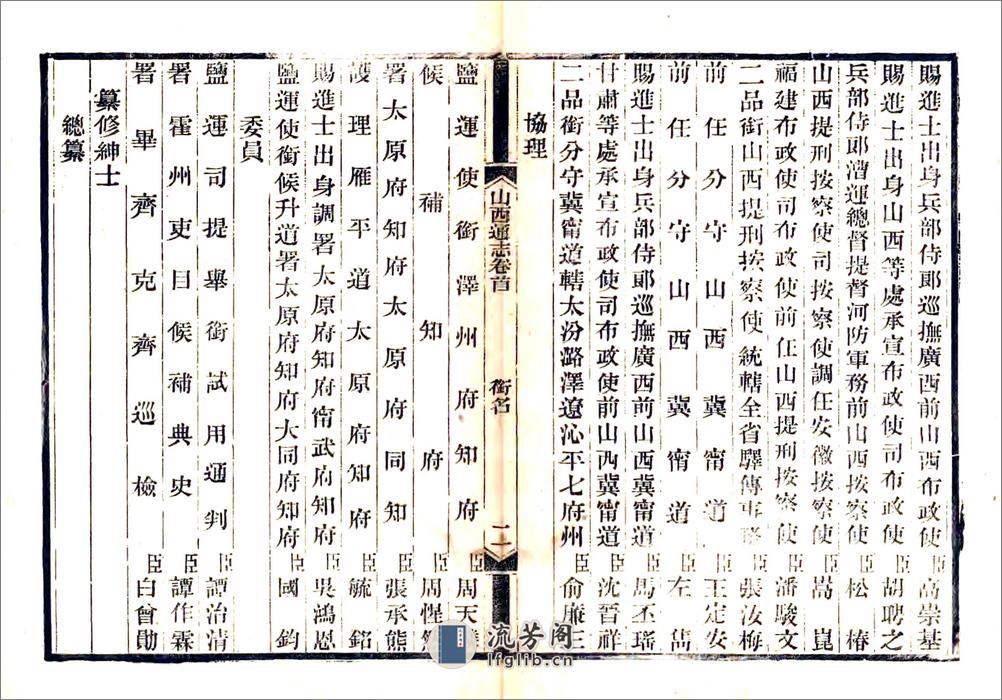 賜進士出身兵部侍郞巡撫廣西前山西布政使臣高崇基
賜進士出身山西等處承宣布政使司布政使臣胡聘之
兵部侍郞漕運總督提督河防軍務前山西按察使臣松椿
山西提刑按察使司按察使調任安徽按察使臣嵩崑
福建布政使司布政使前任山西提刑按察使臣潘駿文
二品銜山西提刑按察使統轄全省驛傳事務臣張汝梅
前任分守山西冀甯道臣王定安
前任分守山西冀甯道臣左雋
賜進士出身兵部侍郞巡撫廣西前山西冀甯道臣馬丕瑤
甘肅等處承宣布政使司布政使前山西冀甯道臣沈晉祥
二品銜分守冀甯道轄太汾潞澤遼沁平七府州臣俞廉三
協理
山西通志卷首 銜名 二
鹽運使銜澤州府知府臣周天
候補知府臣周惺
署太原府知府太原府同知臣張承熊
護理雁平道太原府知府臣毓銘
賜進士出身調署太原府知府甯武府知府臣吳鴻恩
鹽運使銜候升道署太原府知府大同府知府臣國鈞
委員
鹽運司提舉銜試用通判臣譚治清
署霍州吏目候補典史臣譚作霖
署畢齊克齊巡檢臣白曾勛
纂修紳士
總纂
流芳阁
lfglib.cn